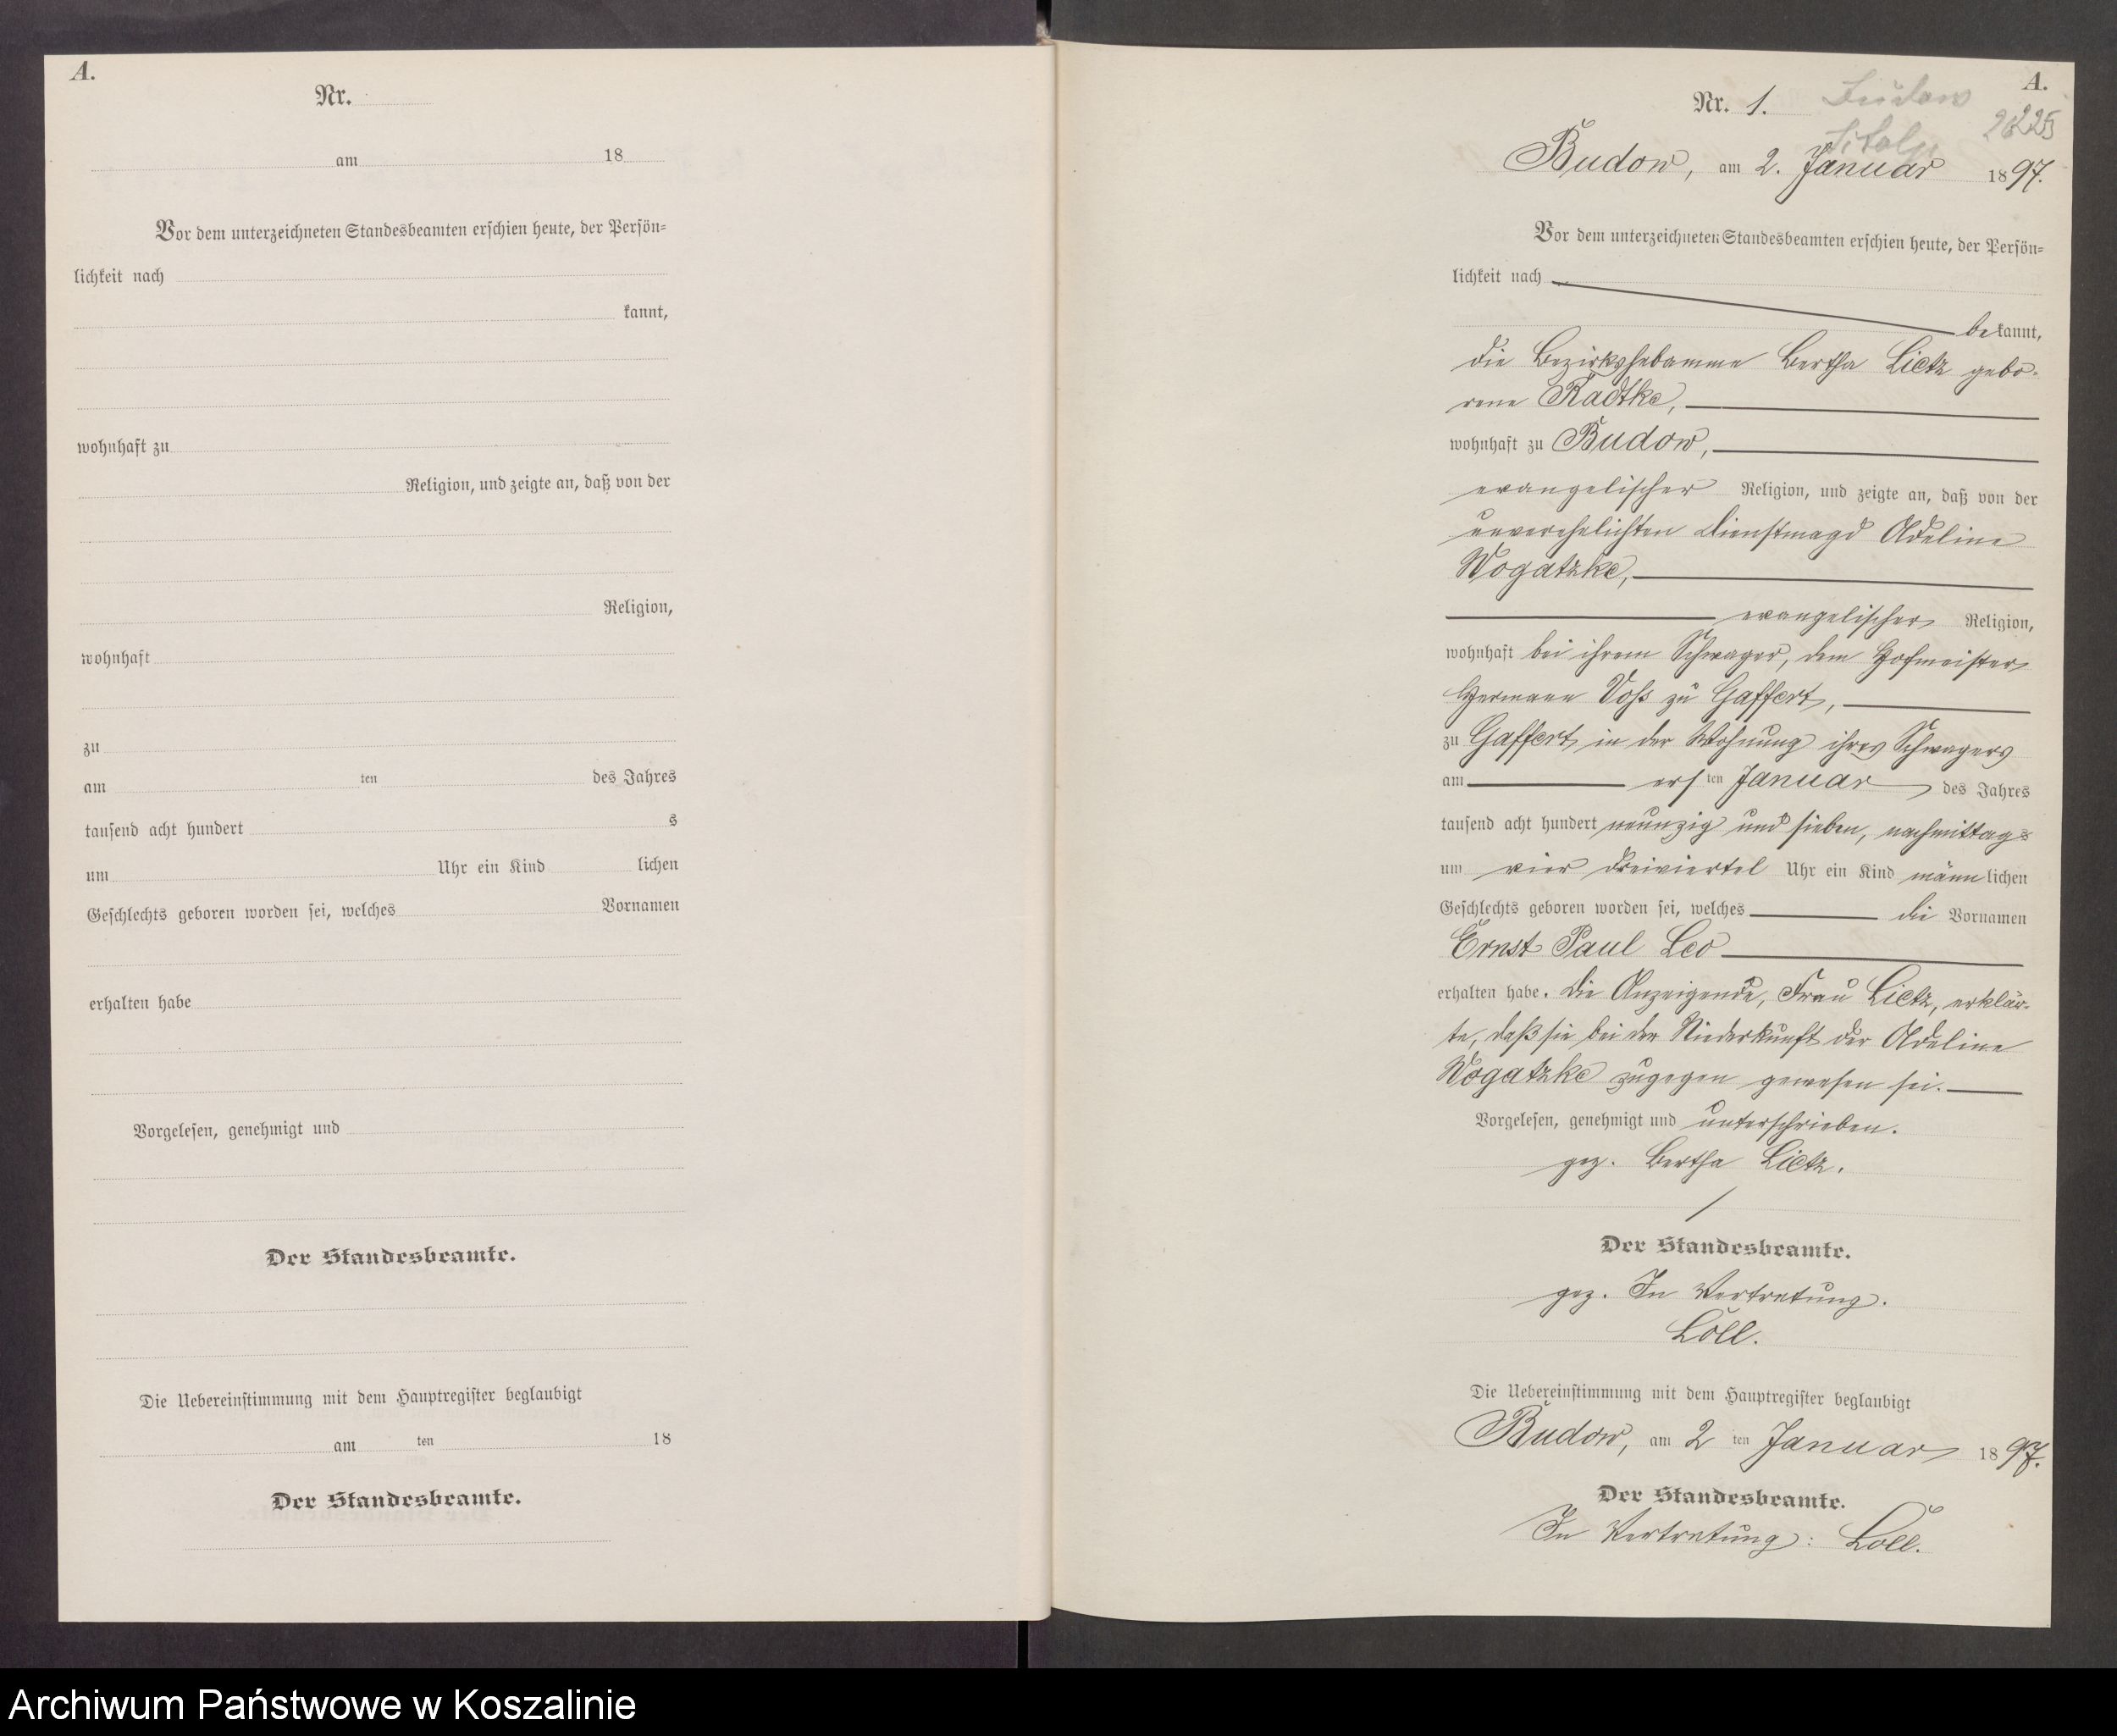 A.
Nr.
am 18
Vor dem unterzeichneten Standesbeamten erschien heute, der Persön-
lichkeit nach
kannt,
wohnhaft zu
Religion, und zeigte an, daß von der
Religion,
wohnhaft
zu
am ten des Jahres
tausend acht hundert s
um Uhr ein Kind lichen
Geschlechts geboren worden sei, welches Vornamen
erhalten habe
Vorgelesen, genehmigt und
Der Standesbeamte.
Die Uebereinstimmung mit dem Hauptregister beglaubigt
am ten 18
Der Standesbeamte.
A.
Nr. 1.
Budow, am 2. Januar 1897.
Vor dem unterzeichneten Standesbeamten erschien heute, der Persön-
lichkeit nach
bekannt,
die Bezirkshebamme Bertha Lietz gebo-
rene Radtke,
wohnhaft zu Budow,
evangelischer Religion, und zeigte an, daß von der
unverehelichten Dienstmagd Adeline
Wogatzke,
evangelischer Religion,
wohnhaft bei ihrem Schwager, dem Hofmeister
Hermann Voß zu Gaffert,
zu Gaffert in der Wohnung ihres Schwagers
am ersten Januar des Jahres
tausend acht hundert neunzig und sieben, nachmittags
um vier dreiviertel Uhr ein Kind männlichen
Geschlechts geboren worden sei, welches die Vornamen
Ernst Paul Leo
erhalten habe. Die Anzeigende, Frau Lietz, erklär-
te, daß sie bei der Niederkunft der Adeline
Wogatzke zugegen gewesen sei.
Vorgelesen, genehmigt und unterschrieben.
gez. Bertha Lietz.
Der Standesbeamte.
gez. In Vertretung.
Loll.
Die Uebereinstimmung mit dem Hauptregister beglaubigt
Budow, am 2 ten Januar 1897.
Der Standesbeamte.
In Vertretung: Loll.
Archiwum Państwowe w Koszalinie